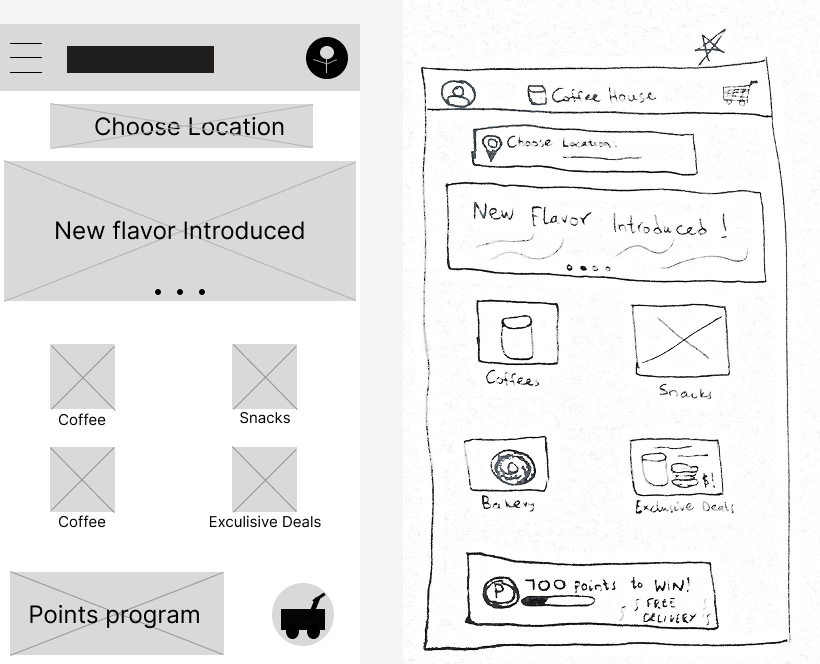 Choose Location
New flavor Introduced
Coffee
Snacks
Coffee
Exculisive Deals
Points program
Coffee House
Choose Location:
New Flavor Introduced !
Coffees
Snacks
Bakery
$!
Exclusive Deals
P
700 Points to WIN!
FREE
DELIVERY